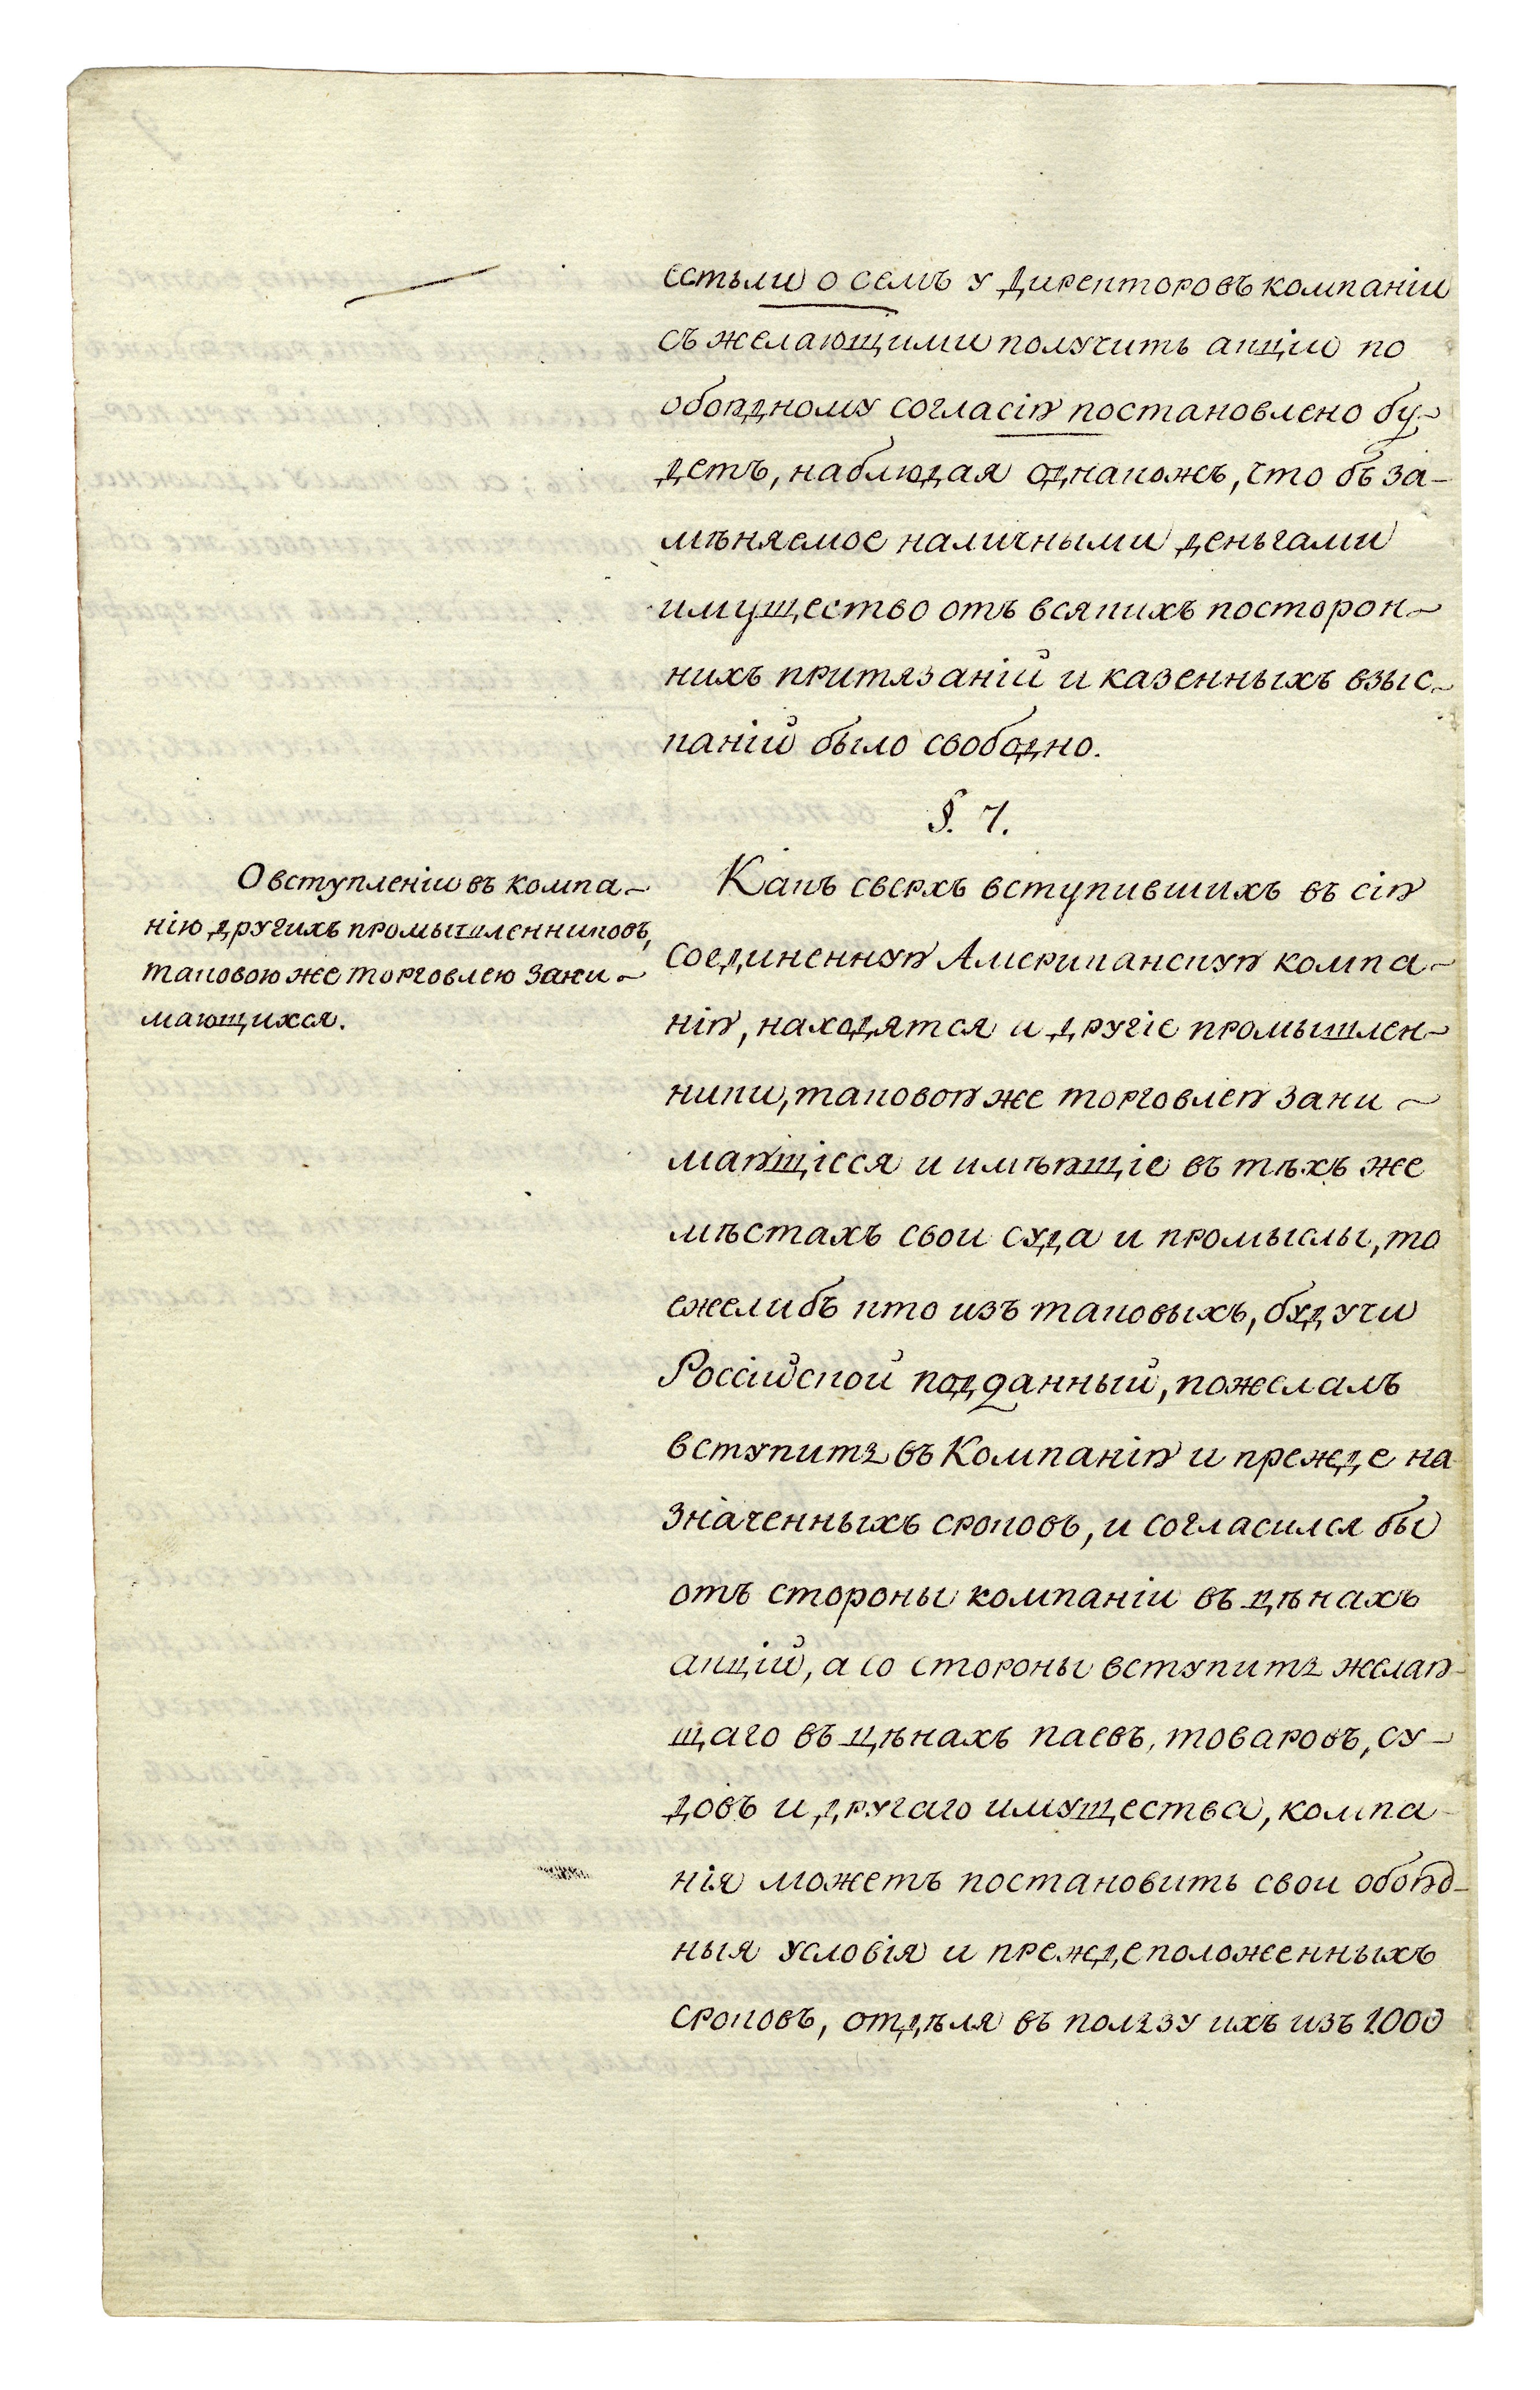 естьли о семъ у Директоровъ компаніи
съ желающими получить акціи по
обоюдному согласію постановлено бу-
детъ, наблюдая однакожъ, что бъ за-
мѣняемое наличными деньгами
имущество отъ всякихъ посторон-
нихъ притязаній и казенныхъ взыс-
каній было свободно.
§. 7.
О вступленіи въ компа-
нію другихъ промышленниковъ,
таковою же торговлею зани-
мающихся.
Какъ сверхъ вступившихъ въ сію
соединенную Американскую компа-
нію, находятся и другіе промышлен-
ники, таковою же торговлею зани-
мающіеся и имѣющіе въ тѣхъ же
мѣстахъ свои суда и промыслы, то
ежелибъ кто изъ таковыхъ, будучи
Россійской подданный, пожелалъ
вступить въ Компанію и прежде на
значенныхъ сроковъ, и согласился бы
отъ стороны компаніи въ цѣнахъ
акцій, а со стороны вступить желаю-
щаго въ цѣнахъ паевъ, товаровъ, су-
довъ и другаго имущества, компа-
нія можетъ постановить свои обоюд-
ныя условія и прежде положенныхъ
сроковъ, отдѣля въ пользу ихъ изъ 1000